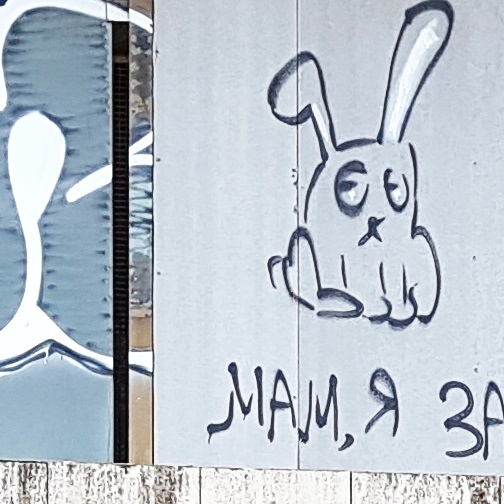 МАМ, Я ЗА